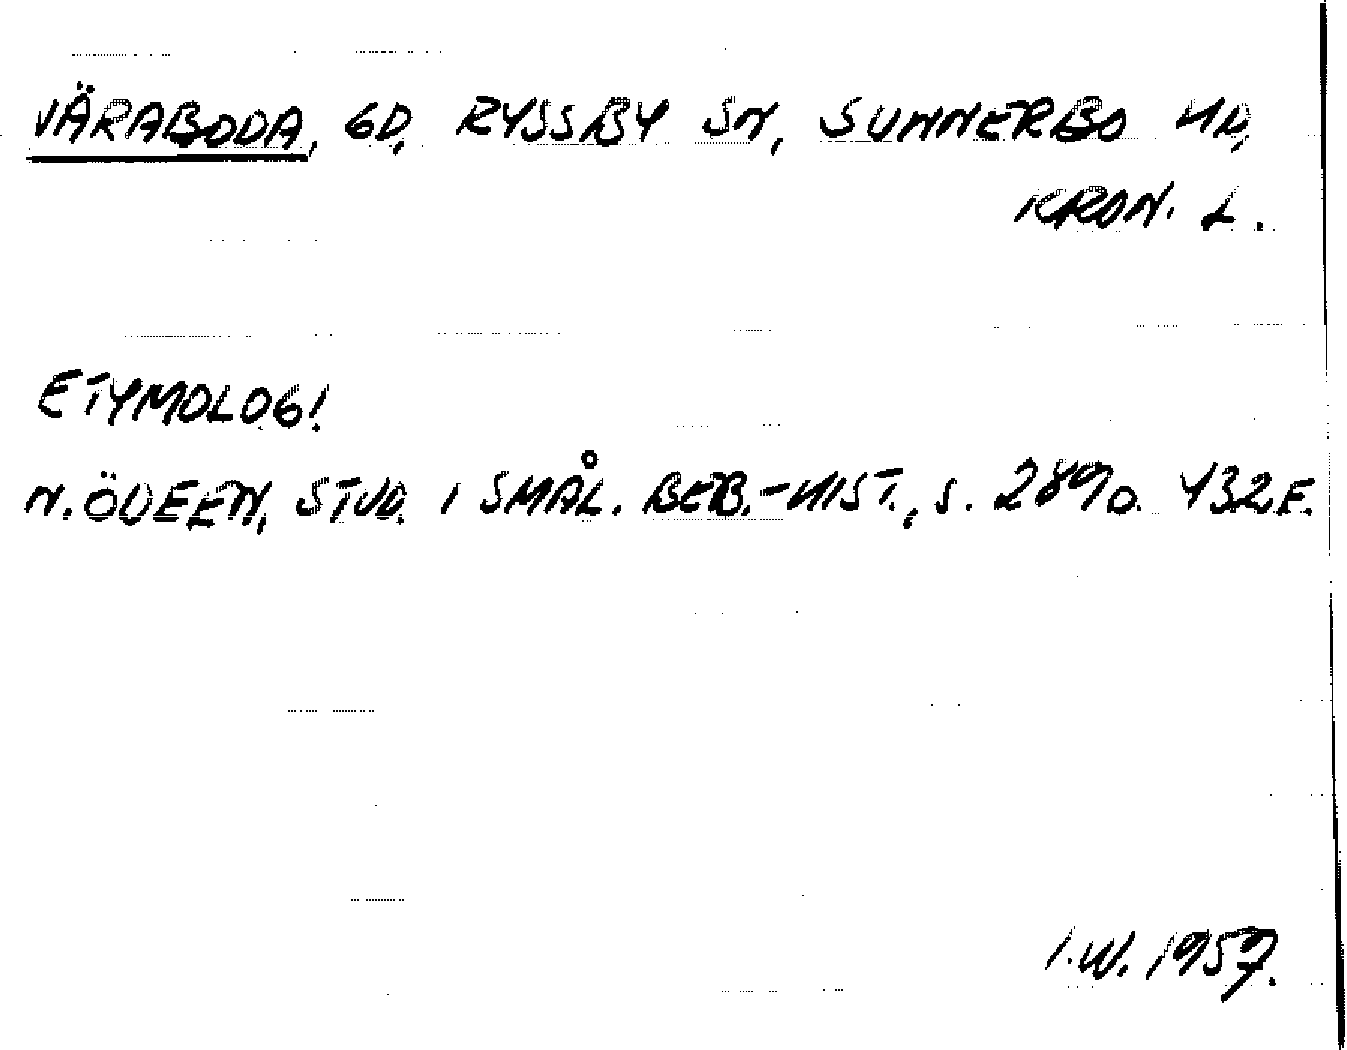 VÄRABODA, GD, RYSSBY SN, SUNNERBO HD,
KRON. L.
ETYMOLOGI
N. ÖDEEN, STUD. I SMÅL. BEB.-HIST., S. 289 O. 432 F.
I.W. 1959.